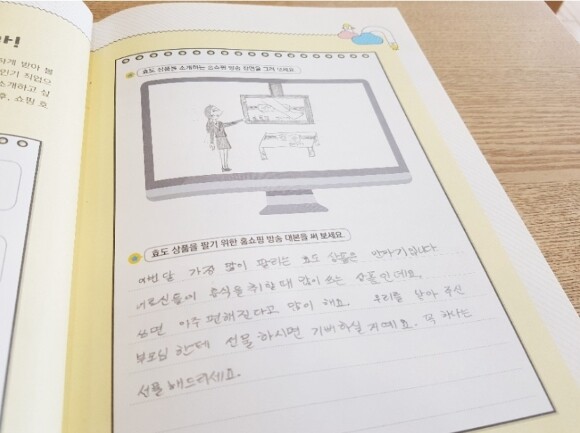 하!
하게 받아 볼
인기 직업으
소개하고 상
후, 쇼핑 호
효도 상품을 소개하는 홈쇼핑 방송 장면을 그려 보세요.
효도 상품을 팔기 위한 홈쇼핑 방송 대본을 써 보세요.
이번 달 가장 많이 팔리는 효도 상품은 안마기입니다
어르신들이 휴식을 취할 때 많이 쓰는 상품인데요.
쓰면 아주 편해진다고 많이 해요. 우리를 낳아 주신
부모님 한테 선물 하시면 기뻐하실 거예요. 꼭 하나는
선물 해드리세요.